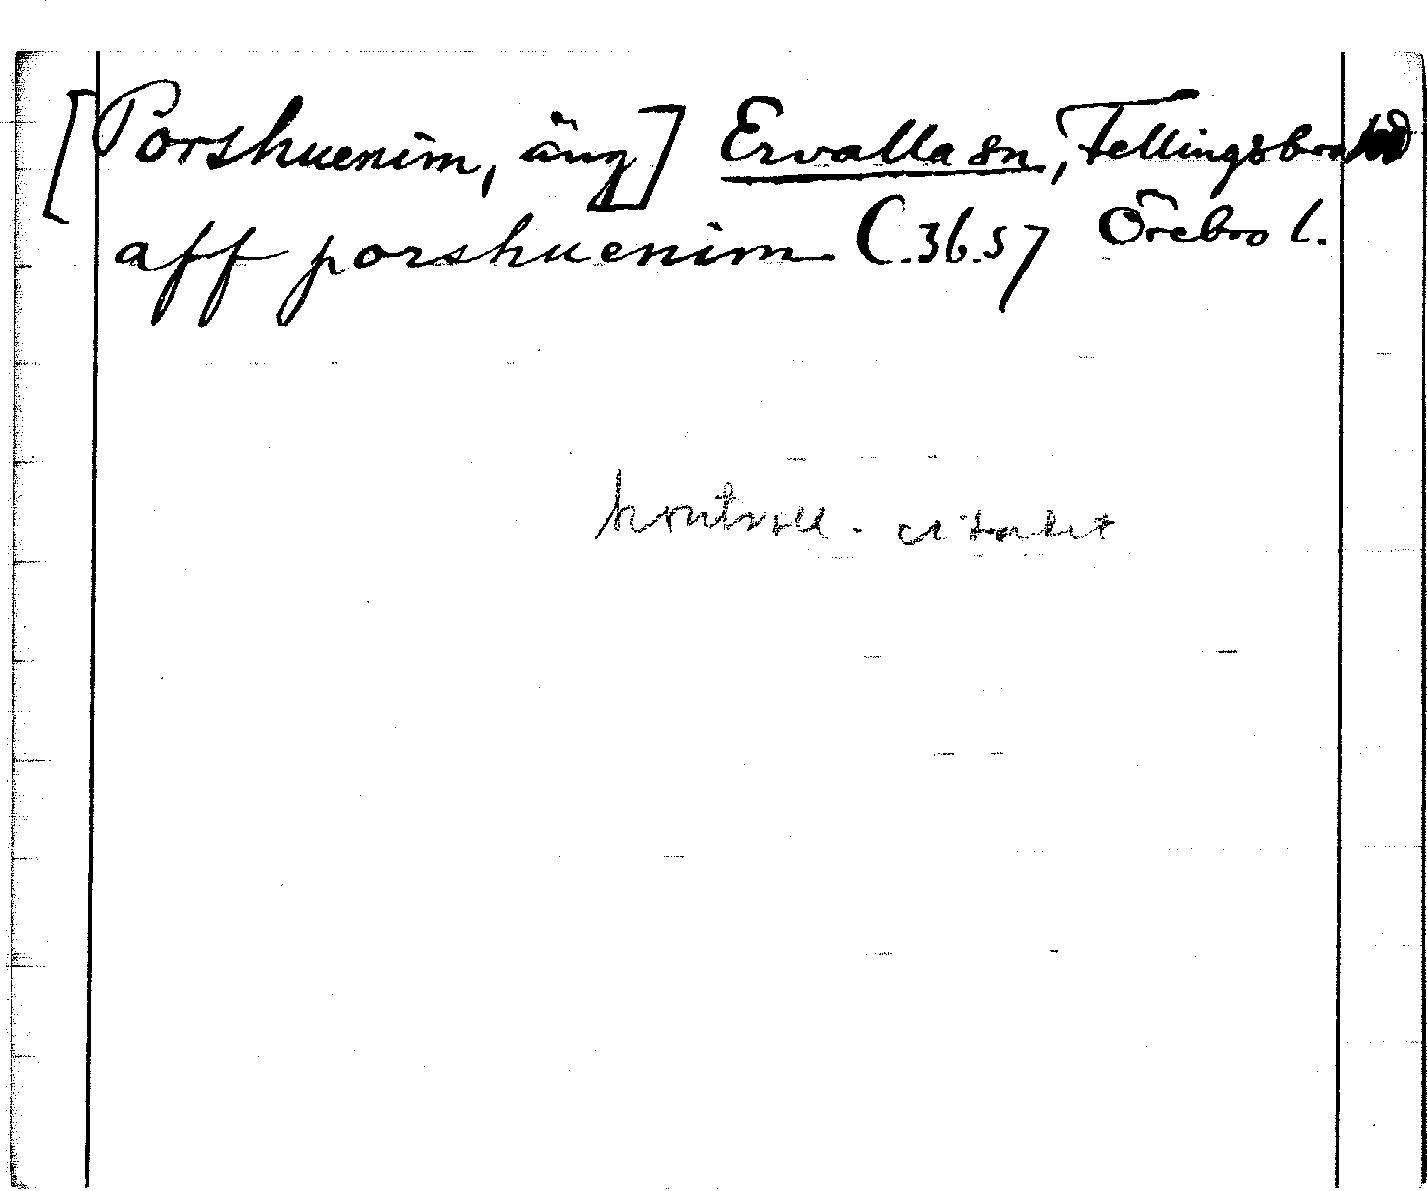 [Porshuenim, äng] Ervalla sn, Fellingsbro hd
aff porshuenim (.36.57 Örebro l.
kontroll. citatet